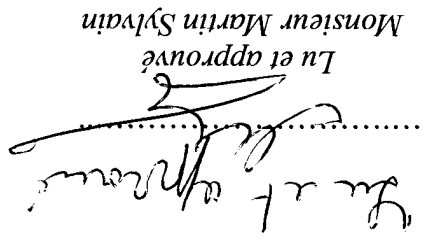 Lu et approuvé
..............................
Lu et approuvé
Monsieur Martin Sylvain